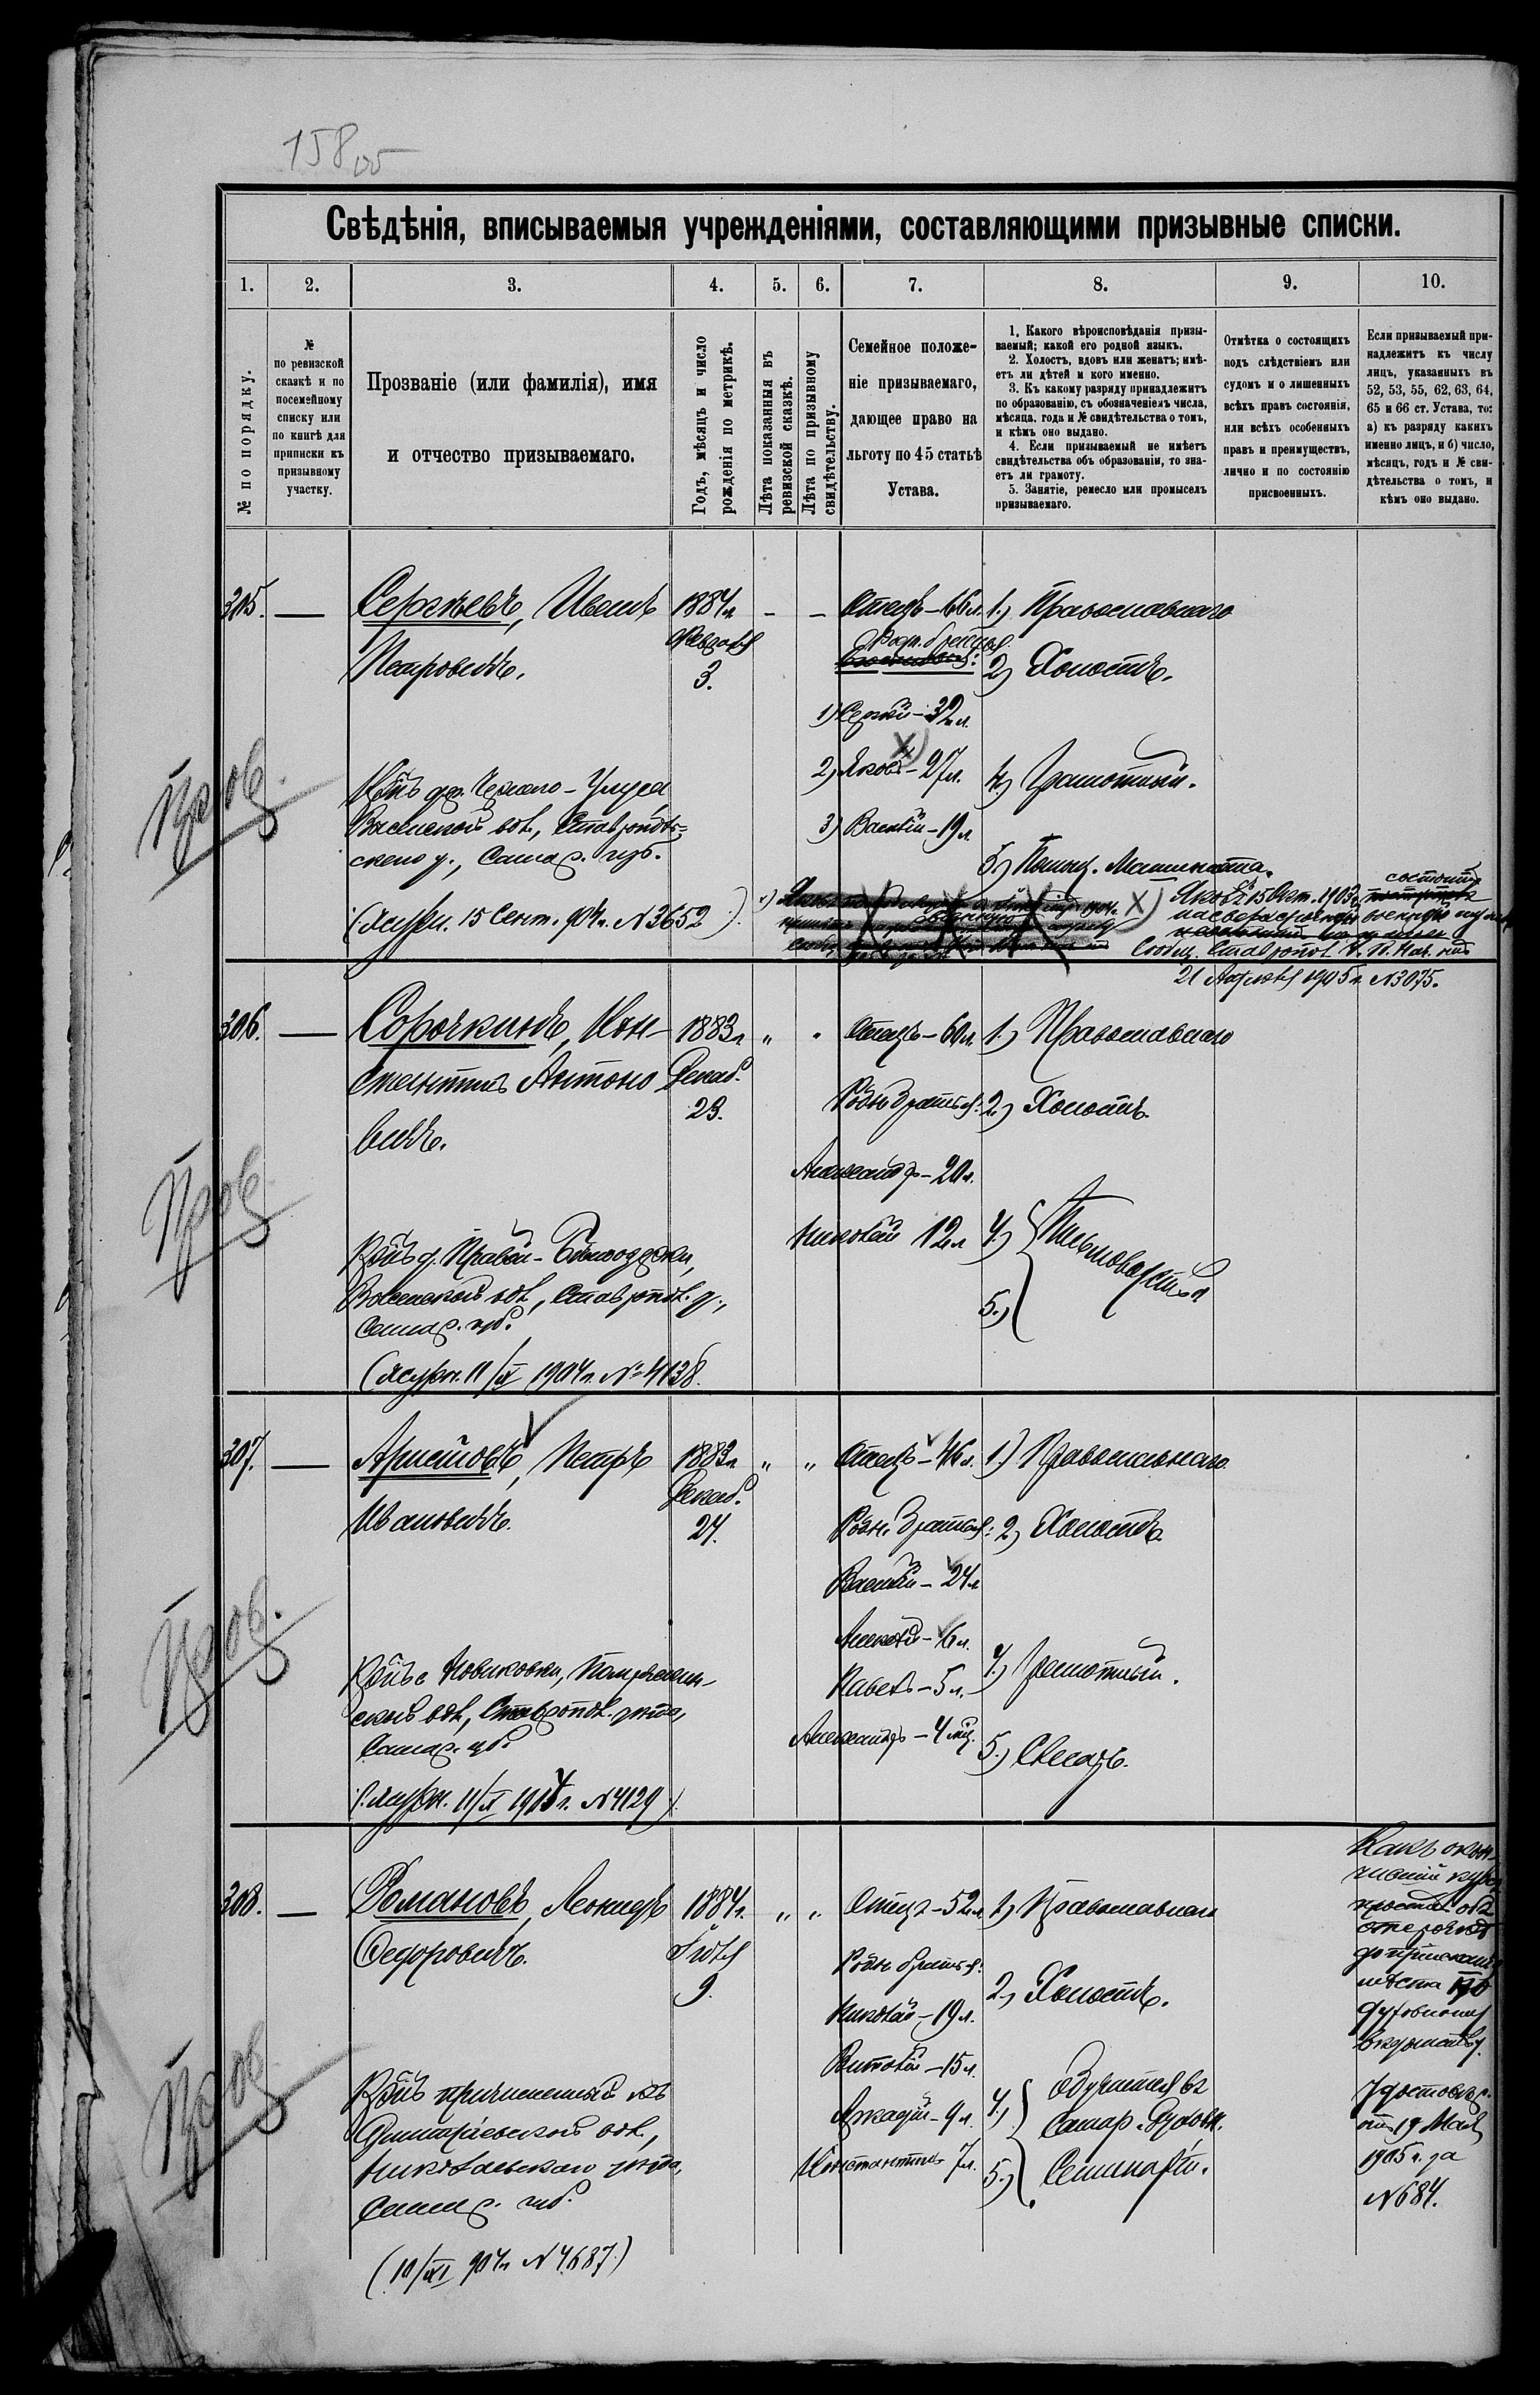 158 об
Свѣдѣнія, вписываемыя учрежденіями, составляющими призывные списки.
1. 2. 3. 4. 5. 6. 7. 8. 9. 10.
№ по порядку.
№
по ревизской
сказкѣ и по
посемейному
списку или
по книгѣ для
приписки къ
призывному
участку.
Прозваніе (или фамилія), имя
и отчество призываемаго.
Годъ, мѣсяцъ и число
рожденія по метрикѣ.
Лѣта показанныя въ
ревизской сказкѣ.
Лѣта по призывному
свидѣтельству.
Семейное положе-
ніе призываемаго,
дающее право на
льготу по 45 статьѣ
Устава.
1. Какого вѣроисповѣданія призы-
ваемый; какой его родной языкъ.
2. Холостъ, вдовъ или женатъ; имѣ-
етъ ли дѣтей и кого именно.
3. Къ какому разряду принадлежитъ
по образованію, съ обозначеніемъ числа,
мѣсяца, года и № свидѣтельства о томъ,
и кѣмъ оно выдано.
4. Если призываемый не имѣетъ
свидѣтельства объ образованіи, то зна-
етъ ли грамоту.
5. Занятіе, ремесло или промыселъ
призываемаго.
Отмѣтка о состоящихъ
подъ слѣдствіемъ или
судомъ и о лишенныхъ
всѣхъ правъ состоянія,
или всѣхъ особенныхъ
правъ и преимуществъ,
лично и по состоянію
присвоенныхъ.
Если призываемый при-
надлежитъ къ числу
лицъ, указанныхъ въ
52, 53, 55, 62, 63, 64,
65 и 66 ст. Устава, то:
а) къ разряду какихъ
именно лицъ, и б) число,
мѣсяцъ, годъ и № сви-
дѣтельства о томъ, и
кѣмъ оно выдано.
305. — Сергѣевъ, Иванъ
Петровичъ.
1884 г.
Февраля
3.
- -
Отецъ - 66 л.
Родн. братья
1) Сергѣй - 32 л.
2) Яковъ - 27 л. Х)
3) Василій - 19 л.
1.) Православнаго
2) Холостъ.
4) Грамотный.
5.) Помощ. Машиниста.
Пров.
Кр-нъ дер.
вол., Ставрополь-
скаго у., Самар. губ.
(Журн. 15 Сент. 904 г. N 3652).
Х) Яковъ съ 15 Окт. 1903 г. состоитъ
на
Сообщ. Ставропол.
21 Апрѣля 1905 г. N 3075.
306. — Сорочкинъ, Кон-
стантинъ Антоно
вичъ.
1883 г.
Декаб.
23.
„ „
Отецъ - 60 л.
Родн. братья:
Александръ - 20 л.
Николай 12 л.
1.) Православнаго
2.) Холостъ.
4.)
5.)
Пров.
вол., Ставропол. у.,
Самар. губ.
(Журн. 11/IX 1904 г. № 4138.
307. — Аристовъ, Петръ
Ивановичъ.
1883 г.
Декаб.
24.
„ „
Отецъ - 46 л.
Родн. братья:
Василій - 24 л.
Алексѣй - 6 л.
Павелъ - 5 л.
Александръ - 4 мѣс.
1.) Православнаго.
2.) Холостъ.
4.) Грамотный.
5.) Слесарь.
Пров.
Кр-нъ с. Новиковки,
вол., Ставропол. уѣзда,
Самар. губ.
(Журн. 11/IX 1904 г. N 4129).
308. — Романовъ, Леонидъ
Федоровичъ.
1884 г.
Іюля
9.
„ „
Отецъ - 52 л.
Родн. братья:
Николай - 19 л.
Виталій - 15 л.
Аркадій - 9 л.
Константинъ 7 л.
1.) Православнаго
2.) Холостъ.
4.)
5.)
Обучается въ
Самар. Духовн.
Семинаріи.
Какъ окон-
чившій курсъ
отсроченъ
до пріисканія
мѣста по
духовному
вѣдомству.
Удостовѣр.
отъ 19 Мая
1905 г. за
N 684.
Пров.
Кр-нъ причисленный къ
вол.,
Николаевскаго уѣзда,
Самар. губ.
(10/XI 904 г. N 4687.)